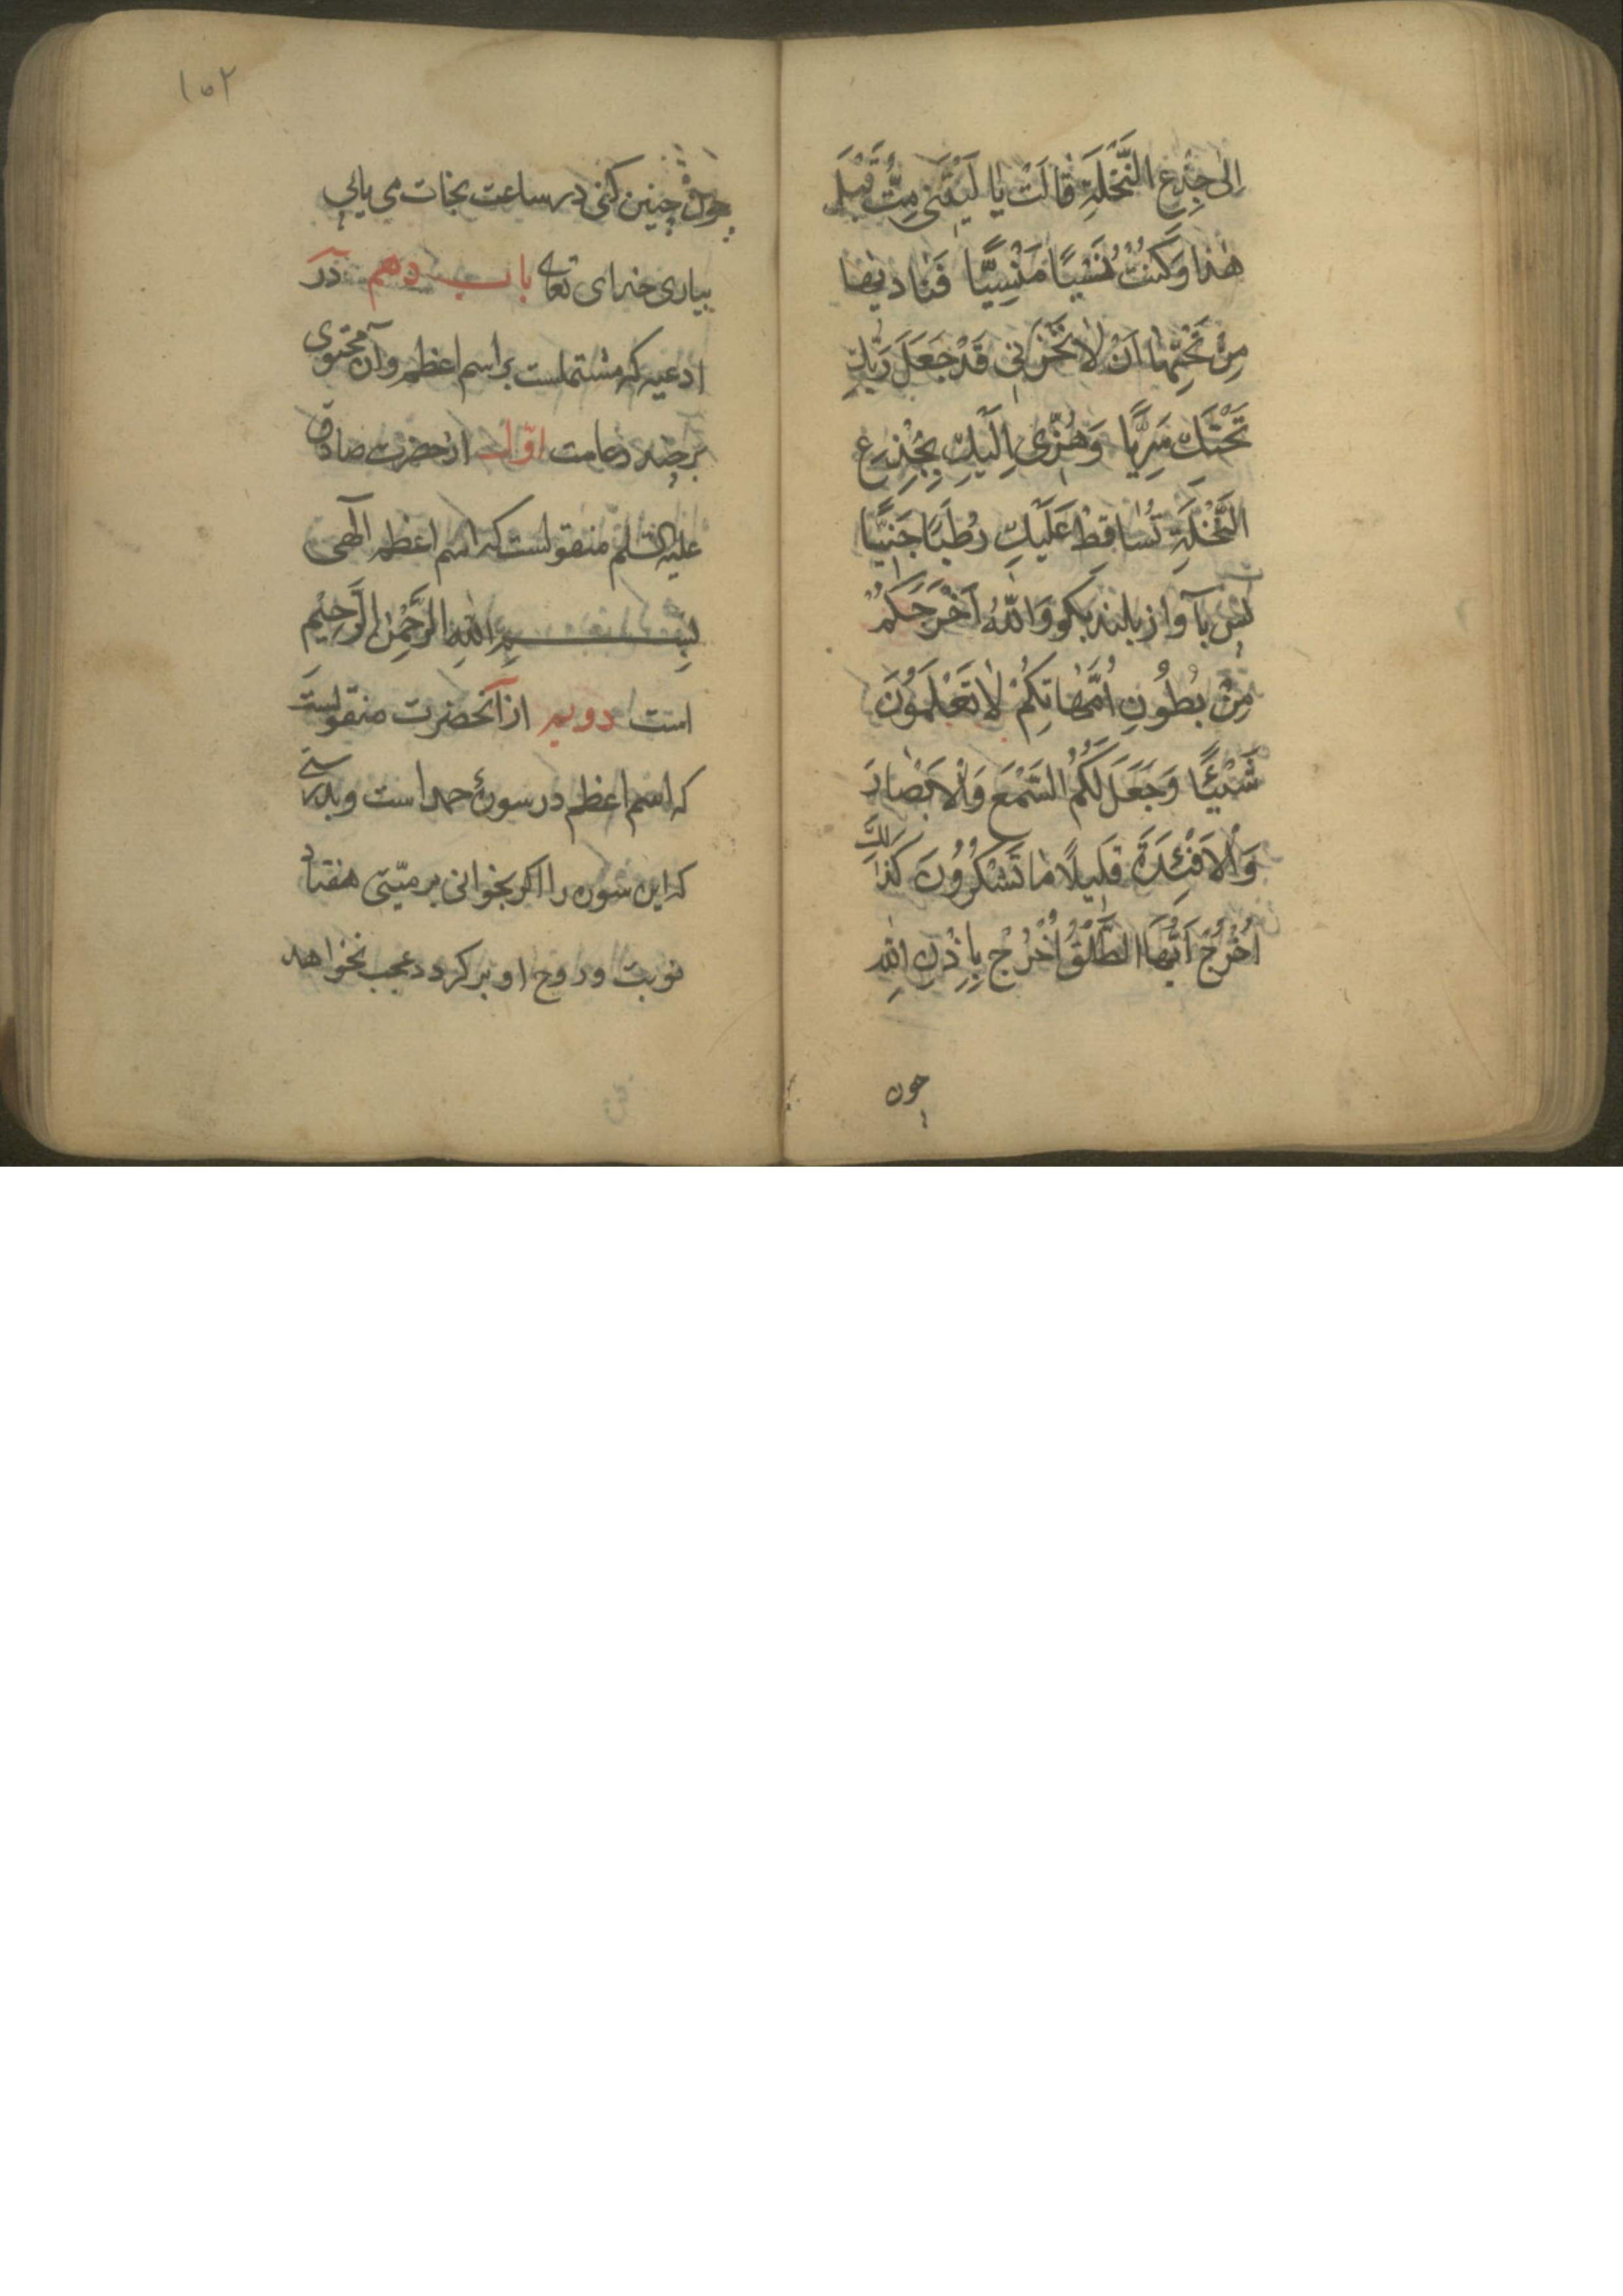 اِلىٰ جِذْعِ النَّخْلَةِ قٰالَتْ يٰا لَيْتَنى مِتُّ قَبْلَ
هٰذا وَكُنْتُ نَسْيًا مَنْسِيًّا فَنٰاديٰها
مِنْ تَحْتِهٰا اَنْ لاٰ تَحْزَنى قَدْ جَعَلَ رَبُّكِ
تَحْتَكِ سَرِيًّا وَهُزّى اِلَيْكِ بِجِذْعِ
النَّخْلَةِ تُسٰاقِطْ عَلَيْكِ رُطَبًا جَنِيًّا
پس بآواز بلند بكو وَاللّٰهُ اَخْرَجَكُمْ
مِنْ بُطُونِ اُمَّهٰاتِكُمْ لاٰ تَعْلَمُونَ
شَيْئًا وَجَعَلَ لَكُمُ السَّمْعَ وَالْاَبْصٰارَ
وَالْاَفْئِدَةَ قَليلًا مٰا تَشْكُرُونَ كَذٰلِكَ
اُخْرُجْ اَيُّهَا الطَّلْقُ اُخْرُجْ بِاِذْنِ اللّٰهِ
چون
١٥٢
چون چنين كنى در ساعت نجات مى يابى
بيارى خداى تعالى باب دهم در
ادعيه كه مشتملست بر اسم اعظم وآن محتوى
بر چند دعاست اوّل از حضرت صادق
عليه السّلم منقولست كه اسم اعظم الٓهى
بِسْمِ اللّٰهِ الرَّحْمٰنِ الرَّحيْمِ
است دويم از آنحضرت منقولست
كه اسم اعظم در سورهٔ حمد است وبدرستى
كه اين سوره را اكر بخوانى بر ميّتى هفتاد
نوبت و روح او بركردد عجب نخواهد